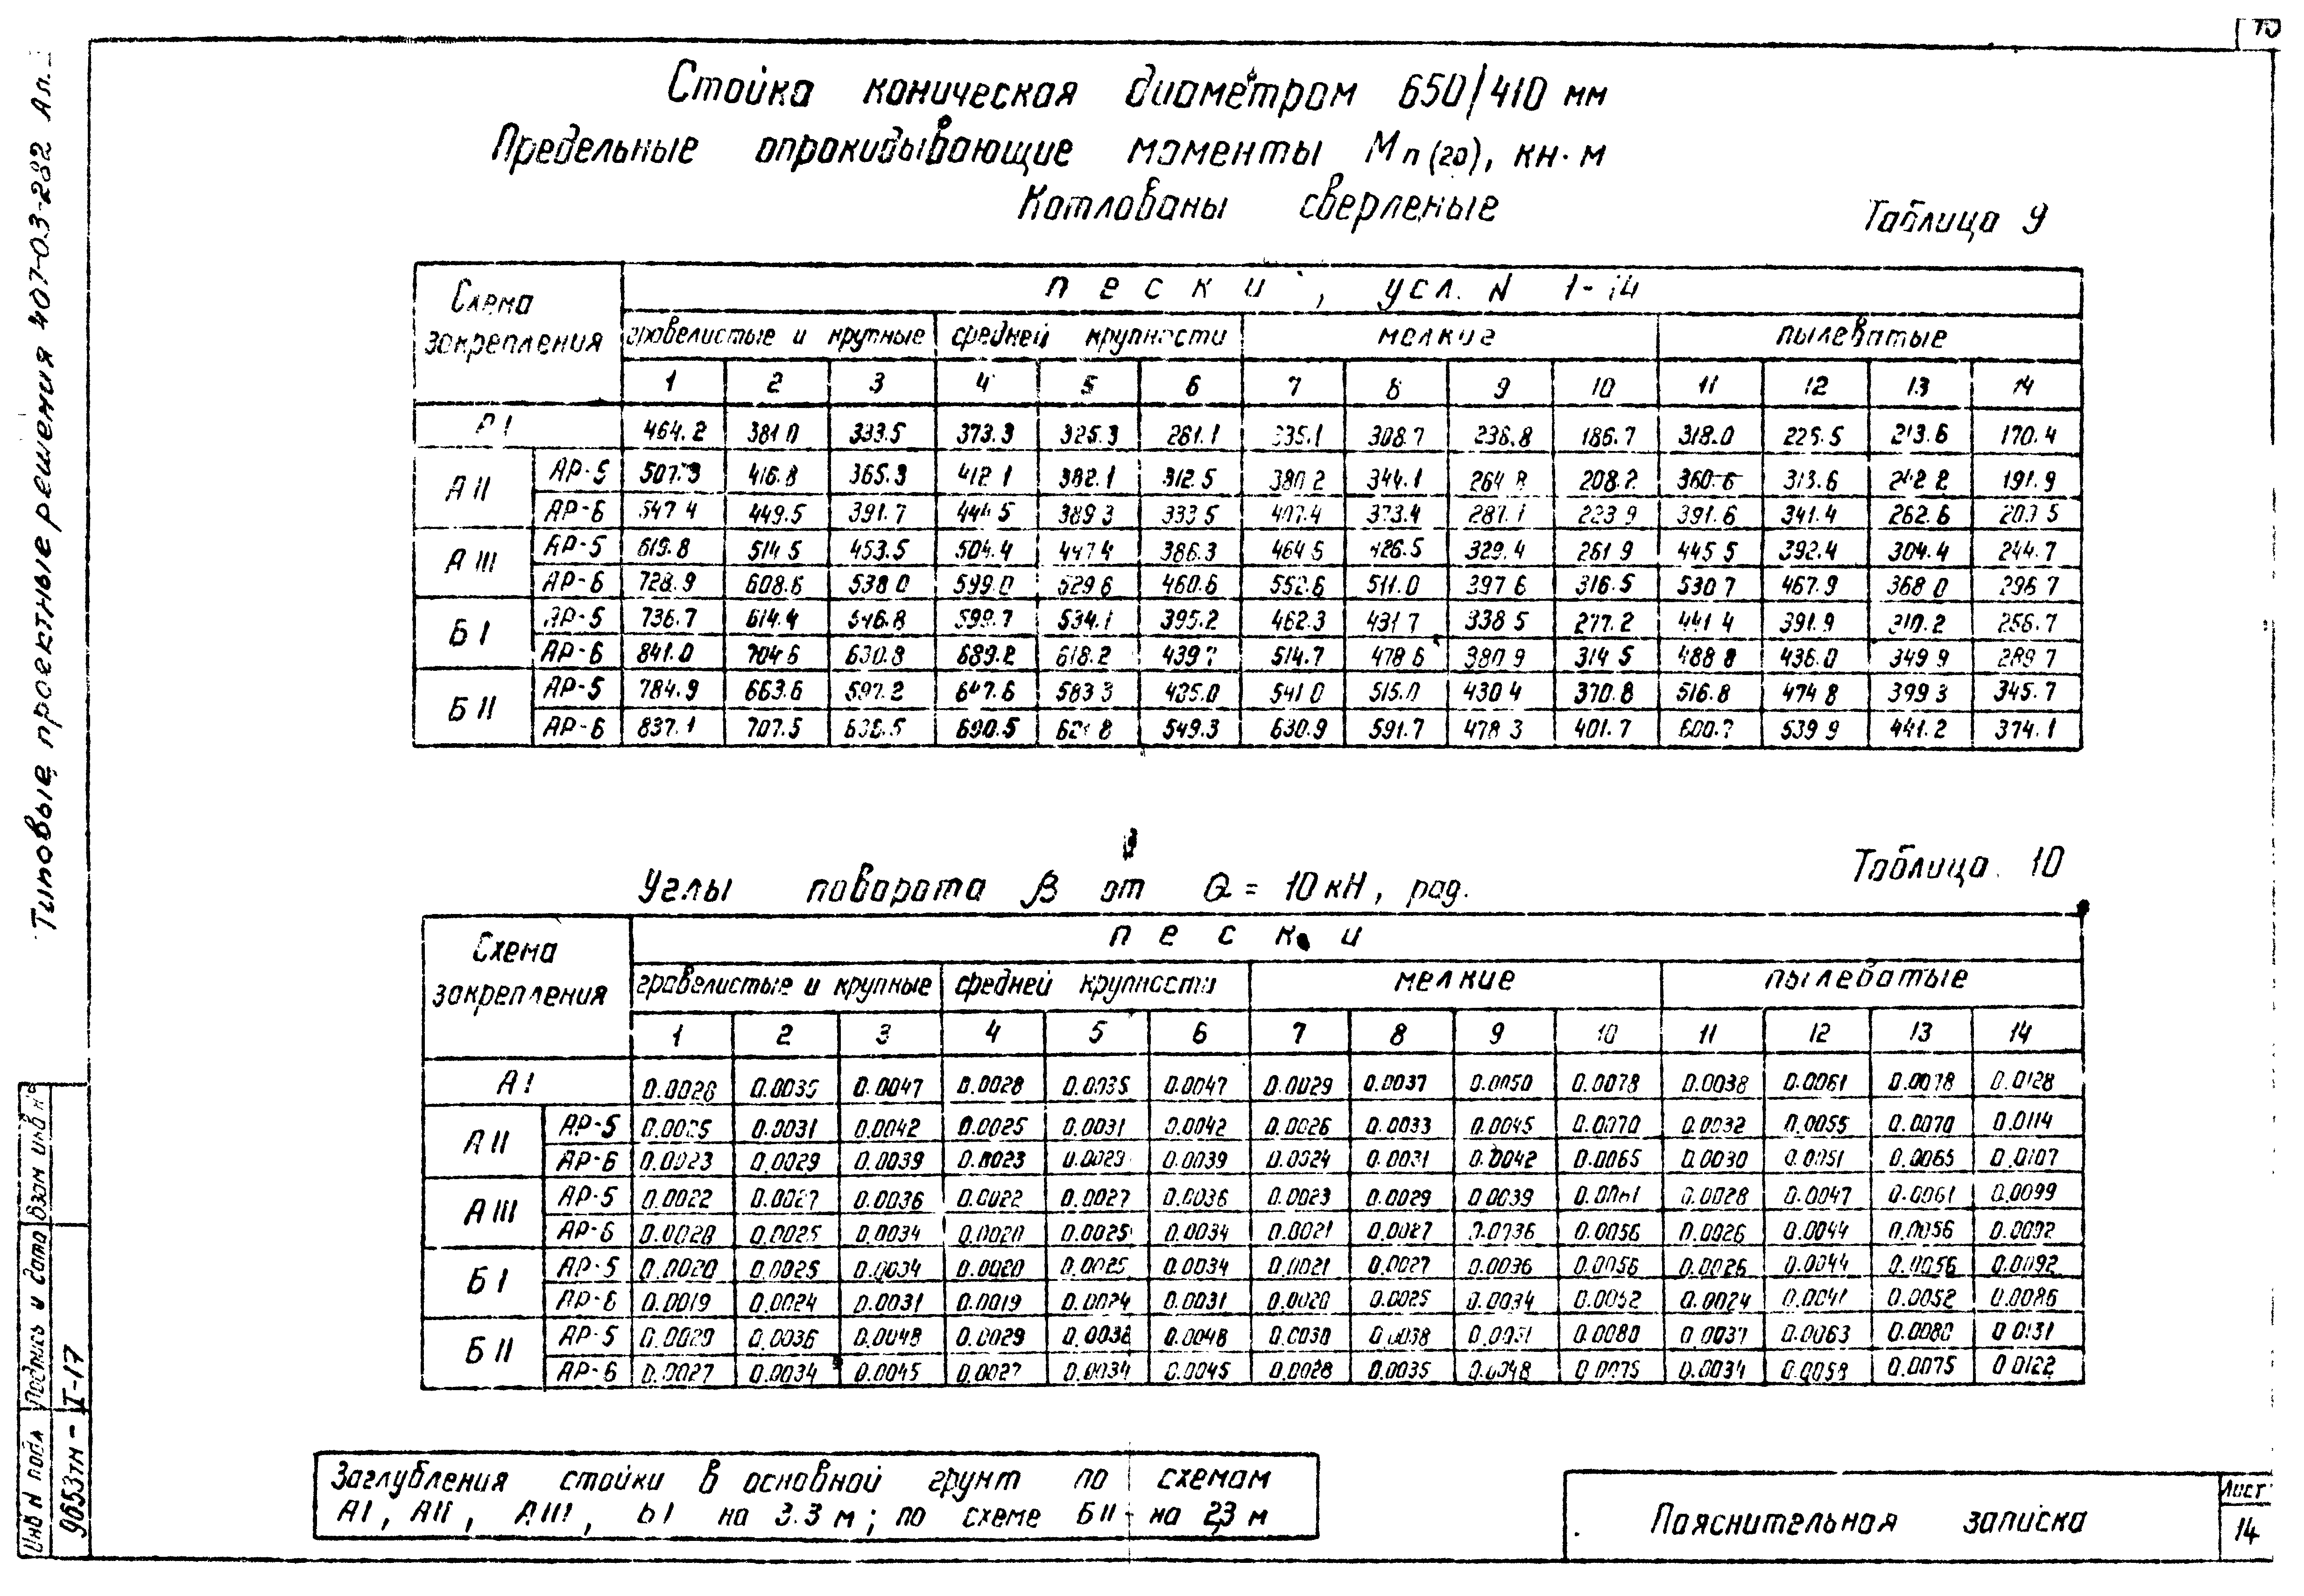 10
Типовые проектные решения 407-03-282 Ал.
Стойка коническая диаметром 650/410 мм
Предельные опрокидывающие моменты Мп(20), кн·м
Котлованы сверленые
Таблица 9
Схема закрепления
пески, усл. N 1-14
гравелистые и крупные средней крупности мелкие пылеватые
1 2 3 4 5 6 7 8 9 10 11 12 13 14
464.2 381.0 333.5 373.3 325.3 261.1 335.1 308.7 236.8 186.7 318.0 225.5 213.6 170.4
А II АР-5 507.3 416.8 365.3 412.1 382.1 312.5 380.2 344.1 264.8 208.2 360.6 313.6 242.2 191.9
АР-6 547.4 449.5 391.7 444.5 389.3 333.5 407.4 373.4 287.1 223.9 391.6 341.4 262.6
А III АР-5 619.8 514.5 453.5 504.4 447.4 386.3 464.5 426.5 329.4 261.9 445.5 392.4 304.4 244.7
АР-6 728.9 608.6 538.0 599.0 529.6 460.6 552.6 511.0 397.6 316.5 530.7 467.9 368.0 296.7
Б I АР-5 736.7 614.4 546.8 599.7 534.1 395.2 462.3 431.7 338.5 277.2 441.4 391.9 310.2 256.7
АР-6 841.0 704.6 630.8 689.2 618.2 439.7 514.7 478.6 380.9 314.5 488.8 436.0 349.9 289.7
Б II АР-5 784.9 663.6 597.2 647.6 583.3 485.0 541.0 515.0 430.4 370.8 516.8 474.8 399.3 345.7
АР-6 837.1 707.5 636.5 690.5 621.8 549.3 630.9 591.7 478.3 401.7 600.7 539.9 441.2 374.1
Таблица 10
Углы поворота β от Q = 10 кН, рад.
Схема закрепления
пески
гравелистые и крупные средней крупности мелкие пылеватые
1 2 3 4 5 6 7 8 9 10 11 12 13 14
А I 0.0026 0.0035 0.0047 0.0028 0.0035 0.0047 0.0029 0.0037 0.0050 0.0078 0.0038 0.0061 0.0078 0.0128
А II АР-5 0.0025 0.0031 0.0042 0.0025 0.0031 0.0042 0.0026 0.0033 0.0045 0.0070 0.0032 0.0055 0.0070 0.0114
АР-6 0.0023 0.0029 0.0039 0.0023 0.0029 0.0039 0.0024 0.0031 0.0042 0.0065 0.0030 0.0051 0.0065 0.0107
А III АР-5 0.0022 0.0027 0.0036 0.0022 0.0027 0.0036 0.0023 0.0029 0.0039 0.0061 0.0028 0.0047 0.0061 0.0099
АР-6 0.0028 0.0025 0.0034 0.0020 0.0025 0.0034 0.0021 0.0027 0.0036 0.0056 0.0026 0.0044 0.0056 0.0092
Б I АР-5 0.0020 0.0025 0.0034 0.0020 0.0025 0.0034 0.0021 0.0027 0.0036 0.0056 0.0026 0.0044 0.0056 0.0092
АР-6 0.0019 0.0024 0.0031 0.0019 0.0024 0.0031 0.0020 0.0025 0.0034 0.0052 0.0024 0.0041 0.0052 0.0086
Б II АР-5 0.0029 0.0036 0.0048 0.0029 0.0036 0.0048 0.0030 0.0038 0.0051 0.0080 0.0037 0.0063 0.0080 0.0131
АР-6 0.0027 0.0034 0.0045 0.0027 0.0034 0.0045 0.0028 0.0035 0.0048 0.0075 0.0034 0.0058 0.0075 0.0122
Заглубления стойки в основной грунт по схемам
АI, АII, АIII, БI на 3.3 м; по схеме БII - на 2,3 м
Пояснительная записка
Лист
14
Инв N подл Подпись и дата Взам инв №
9653тм-II-17